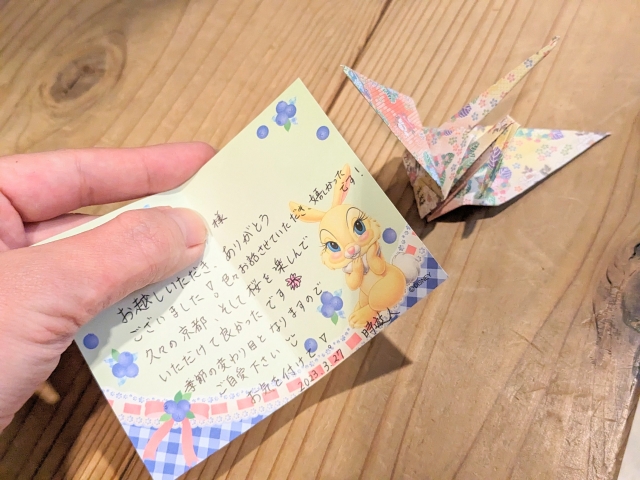 様
お越しいただき、ありがとう
ございました！色々お話させていただき、嬉しかったです！
久々の京都、そして桜を楽しんで
いただけて良かったです
季節の変わり目となりますので
ご自愛下さい
お気を付けて
2023.3.27
©DISNEY